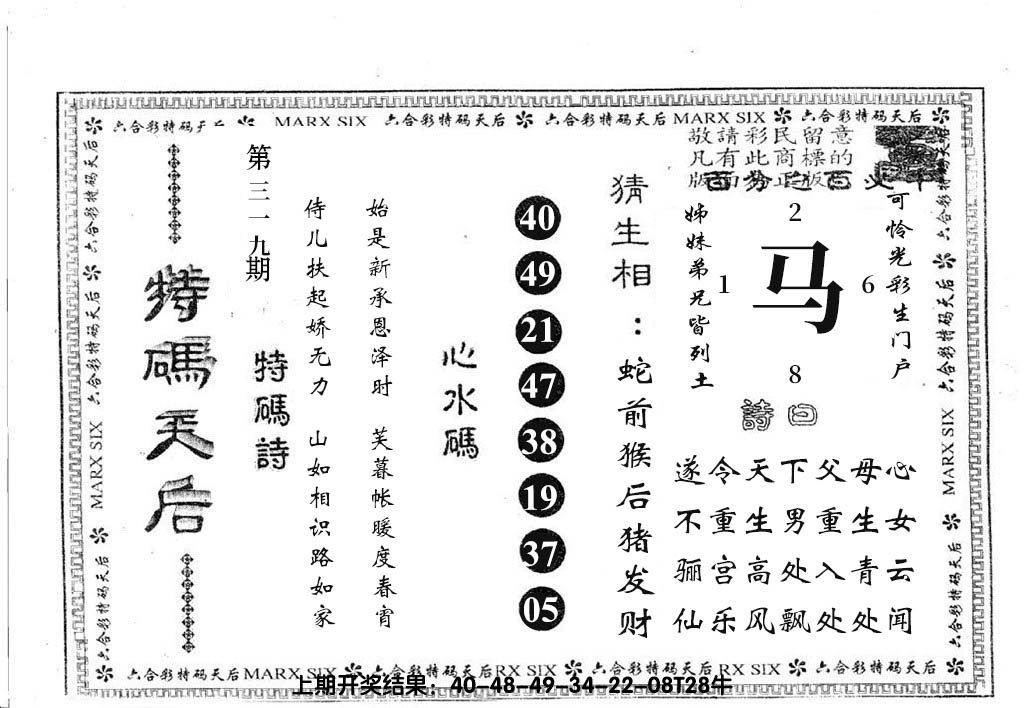 六合彩特码天后 MARX SIX 六合彩特码天后 六合彩特码天后 MARX SIX 六合彩特码天后
敬請彩民留意
凡有此商標的
版面為正版
第三一九期
特碼天后
特碼詩
侍儿扶起娇无力 山如相识路如家
始是新承恩泽时 芙暮帐暖度春宵
心水碼
40
49
21
47
38
19
37
05
猜生相：蛇前猴后猪发财
姊妹弟兄皆列土
可怜光彩生门户
2
1 马 6
8
詩曰
遂令天下父母心
不重生男重生女
骊宫高处入青云
仙乐风飘处处闻
六合彩特码天后
MARX SIX
六合彩特码天后
六合彩特码天后
MARX SIX
六合彩特码天后
六合彩特码天后 MARX SIX 六合彩特码天后 RX SIX 六合彩特码天后 RX SIX 六合彩特码天后
上期开奖结果：40-48-49-34-22-08T28牛